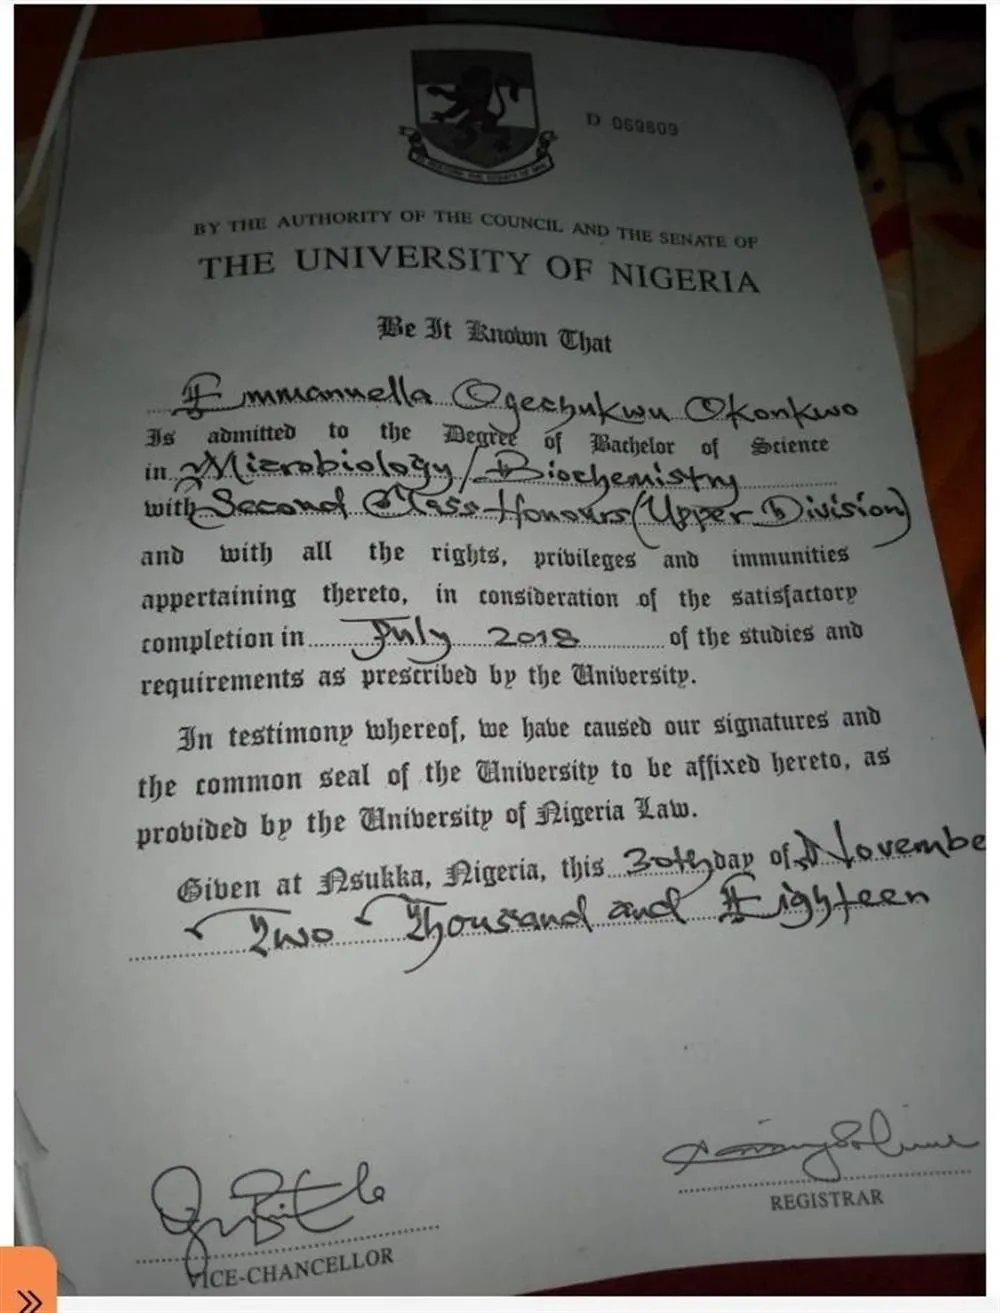 D 069809
BY THE AUTHORITY OF THE COUNCIL AND THE SENATE OF
THE UNIVERSITY OF NIGERIA
Be It Known That
Emmannella Ogechukwu Okonkwo
Is admitted to the Degree of Bachelor of Science
in Microbiology/Biochemistry
with Second Class Honours (Upper Division)
and with all the rights, privileges and immunities
appertaining thereto, in consideration of the satisfactory
completion in July 2018 of the studies and
requirements as prescribed by the University.
In testimony whereof, we have caused our signatures and
the common seal of the University to be affixed hereto, as
provided by the University of Nigeria Law.
Given at Nsukka, Nigeria, this 30th day of Novembe
Two Thousand and Eighteen
VICE-CHANCELLOR
REGISTRAR